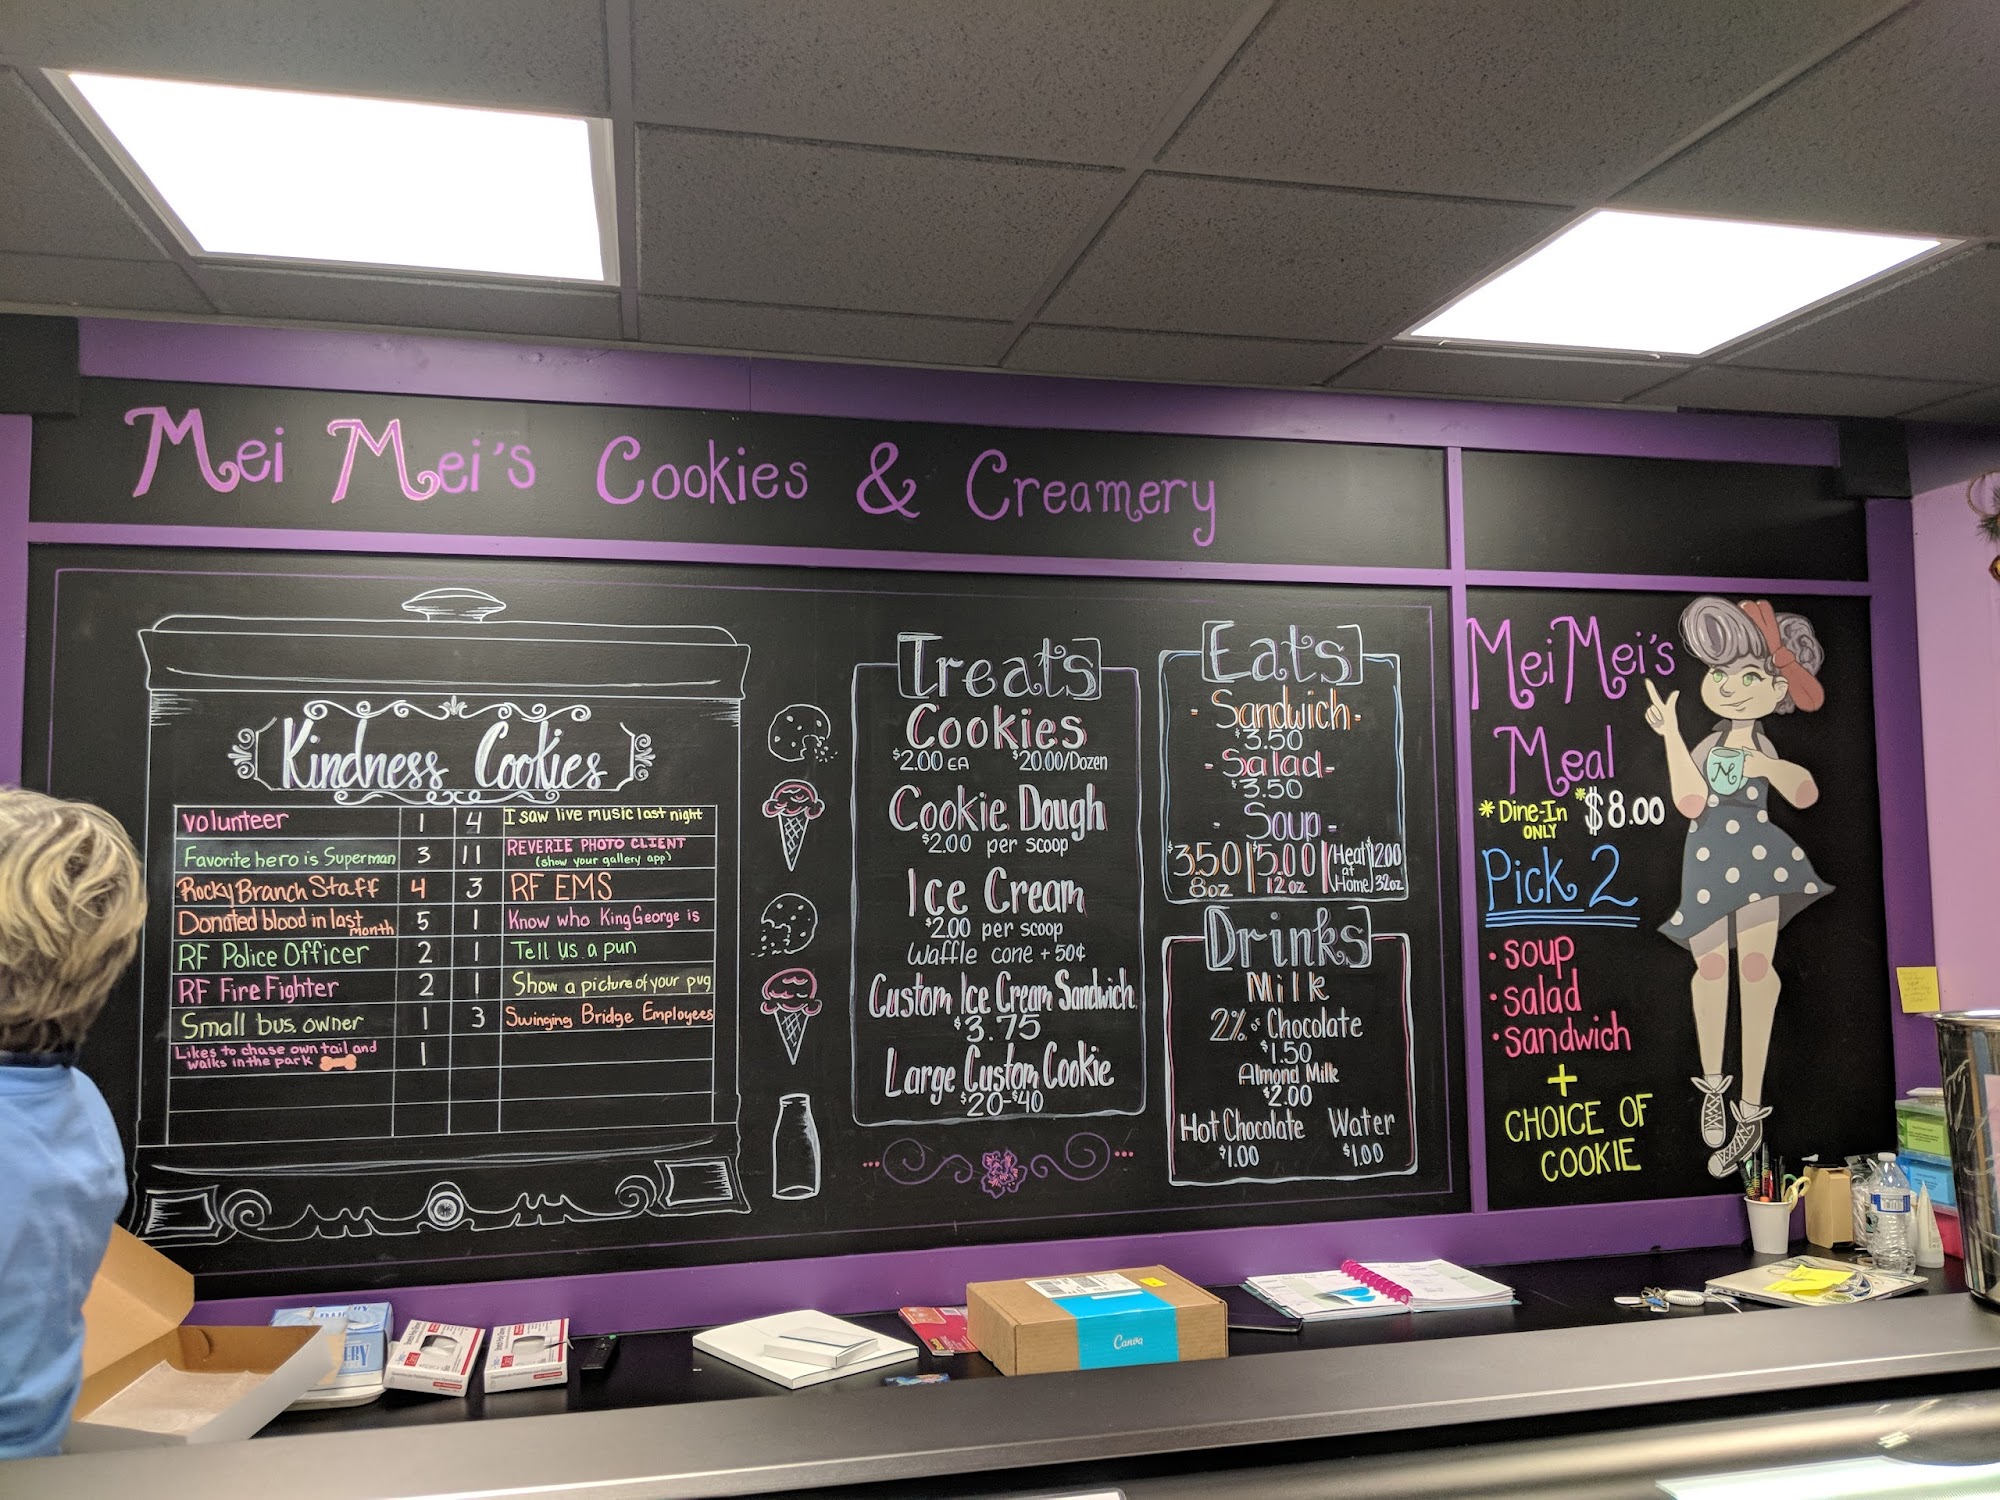 Mei Mei's Cookies & Creamery
Kindness Cookies
Volunteer 1 4 I saw live music last night
Favorite hero is Superman 3 11 REVERIE PHOTO CLIENT
(show your gallery app)
Rocky Branch Staff 4 3 RF EMS
Donated blood in last month 5 1 Know who King George is
RF Police Officer 2 1 Tell us a pun
RF Fire Fighter 2 1 Show a picture of your pug
Small bus. owner 1 3 Swinging Bridge Employees
Likes to chase own tail and
walks in the park 1
Treats
Cookies
$2.00 EA $20.00/Dozen
Cookie Dough
$2.00 per scoop
Ice Cream
$2.00 per scoop
Waffle cone + 50¢
Custom Ice Cream Sandwich
$3.75
Large Custom Cookie
$20-$40
Eats
- Sandwich -
$3.50
- Salad -
$3.50
- Soup -
$3.50 | $5.00 | Heat at Home $12.00
8oz 12oz 32oz
Drinks
Milk
2% or Chocolate
$1.50
Almond Milk
$2.00
Hot Chocolate Water
$1.00 $1.00
Mei Mei's
Meal
*Dine-In ONLY *$8.00
Pick 2
• soup
• salad
• sandwich
+
CHOICE OF
COOKIE
M
Canva